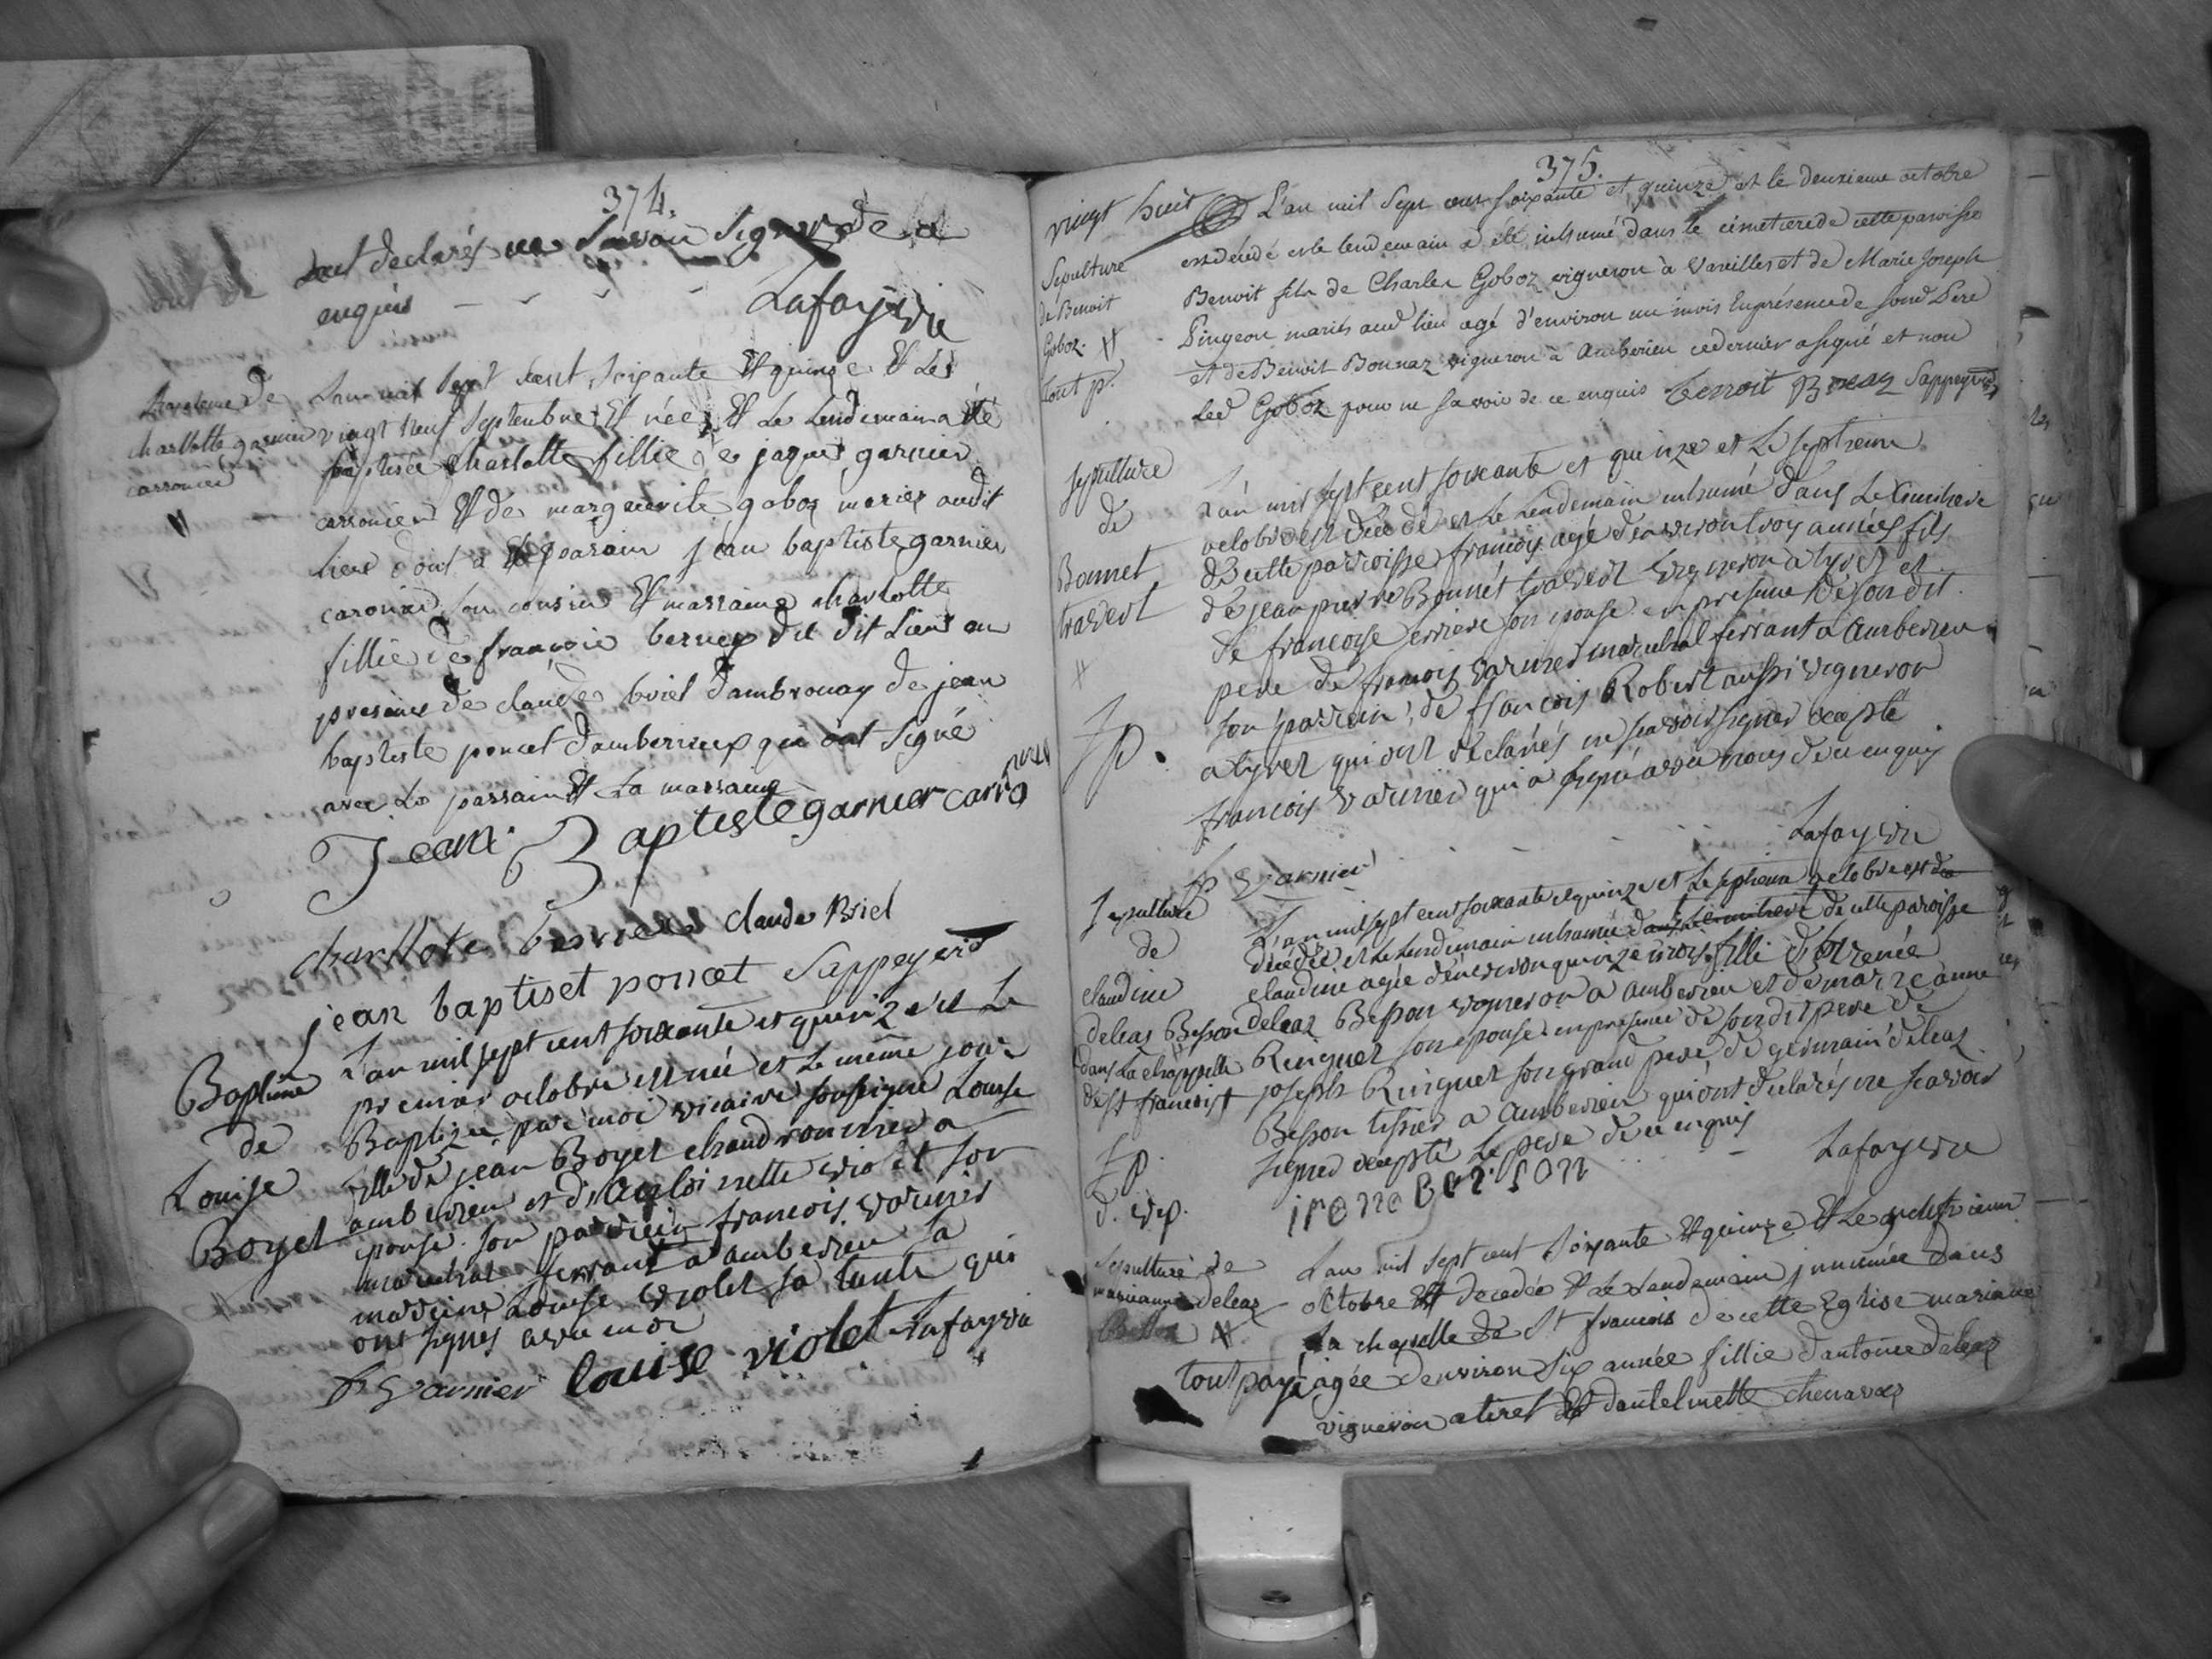 374.
ont declarés ne Savoir Signer de ce
enquis
Lafayvre
Baptême de
charllotte garnier
carronier
L'an mil Sept cent soixante et quinze et Le
vingt neuf Septembre est née et Le Lendemain a été
baptisée charlotte fillie de jaques garnier
carronier et de marguerite goboz mariés audit
lieu dont a été parain jean baptiste garnier
caronier son cousin et marraine charlotte
fillie de francois bernex du dit Lieu en
presence de claude briel d'ambronay de jean
baptiste poncet d'amberieux qui ont Signé
avec Le parrain et La marraine
Jean Baptiste garnier carronier
charllote claude Briel
jean baptiset poncet Sappeyvre
Baptême
de
Louise
Boyet
L'an mil sept cent soixante et quinze et Le
premier octobre est née et Le même jour
Baptizée par moi vicaire soussigné Louise
fille de jean Boyet chaudronnier a
amberieu et d' violet son
epouse. son parrein francois varnier
marechal ferrant a amberieu sa
marreine Louise violet sa tante qui
ont signés avec moi
f varnier louise violet Lafayvre
375.
vingt huit
Sepulture
de Benoit
Goboz.
tout p.
L'an mil Sept cent soixante et quinze et le deuxieme octobre
est décédé et le lendemain a été inhumé dans le cimetiere de cette paroisse
Benoit fils de Charles Goboz vigneron à Vareilles et de Marie Joseph
Pingeon mariés aud lieu agé d'environ un mois En présence de Sond Pere
et de Benoit Bonnaz vigneron à Amberieu ce dernier a signé et non
Led Goboz pour ne savoir de ce enquis Benoit Sappeyvre
Sepulture
de
Bonnet
travert
p.
L'an mil sept cent soixante et quinze et Le septieme
octobre est décédé et Le Lendemain inhumé dans Le Cimitiere
de cette parroisse francois agé d'environ trois années fils
de jean pierre Bonnet travert vigneron a tyret et
de francoise erriere son epouse en presence de son dit
pere de francois varnier marechal ferrant a amberieu
son parrein, de francois Robert aussi vigneron
a tyret qui ont declarés ne scavoir signer excepté
francois varnier qui a signé avec nous de ce enquis
Lafayvre
f varnier
Sepulture
de
claudine
deleaz Besson
dans La chappelle
de st francois
p.
L'an mil sept cent soixante et quinze et Le septieme octobre est de
décédée et Le Lendemain inhumée dans Le cimitiere de cette paroisse
claudine agée d'environ quinze mois fille d'Irenée
deleaz Besson vigneron a amberieu et de marie anne
Ringuet son epouse en presence de son dit pere de
joseph Ringuet son grand pere, de germain deleaz
Besson tissier a amberieu qui ont declarés ne scavoir
signer excepté Le pere de ce enquis
Lafayvre
irene Besson
Sepulture de
marianne deleaz
tout payé
L'an mil sept cent soixante et quinze et Le
octobre est decedée et Le Lendemain inumée dans
La chapelle de St francois de cette Eglise mariane
agée d'environ Six année fillie d'antoine deleaz
vigneron a tiret et d'antelmette chenavaz